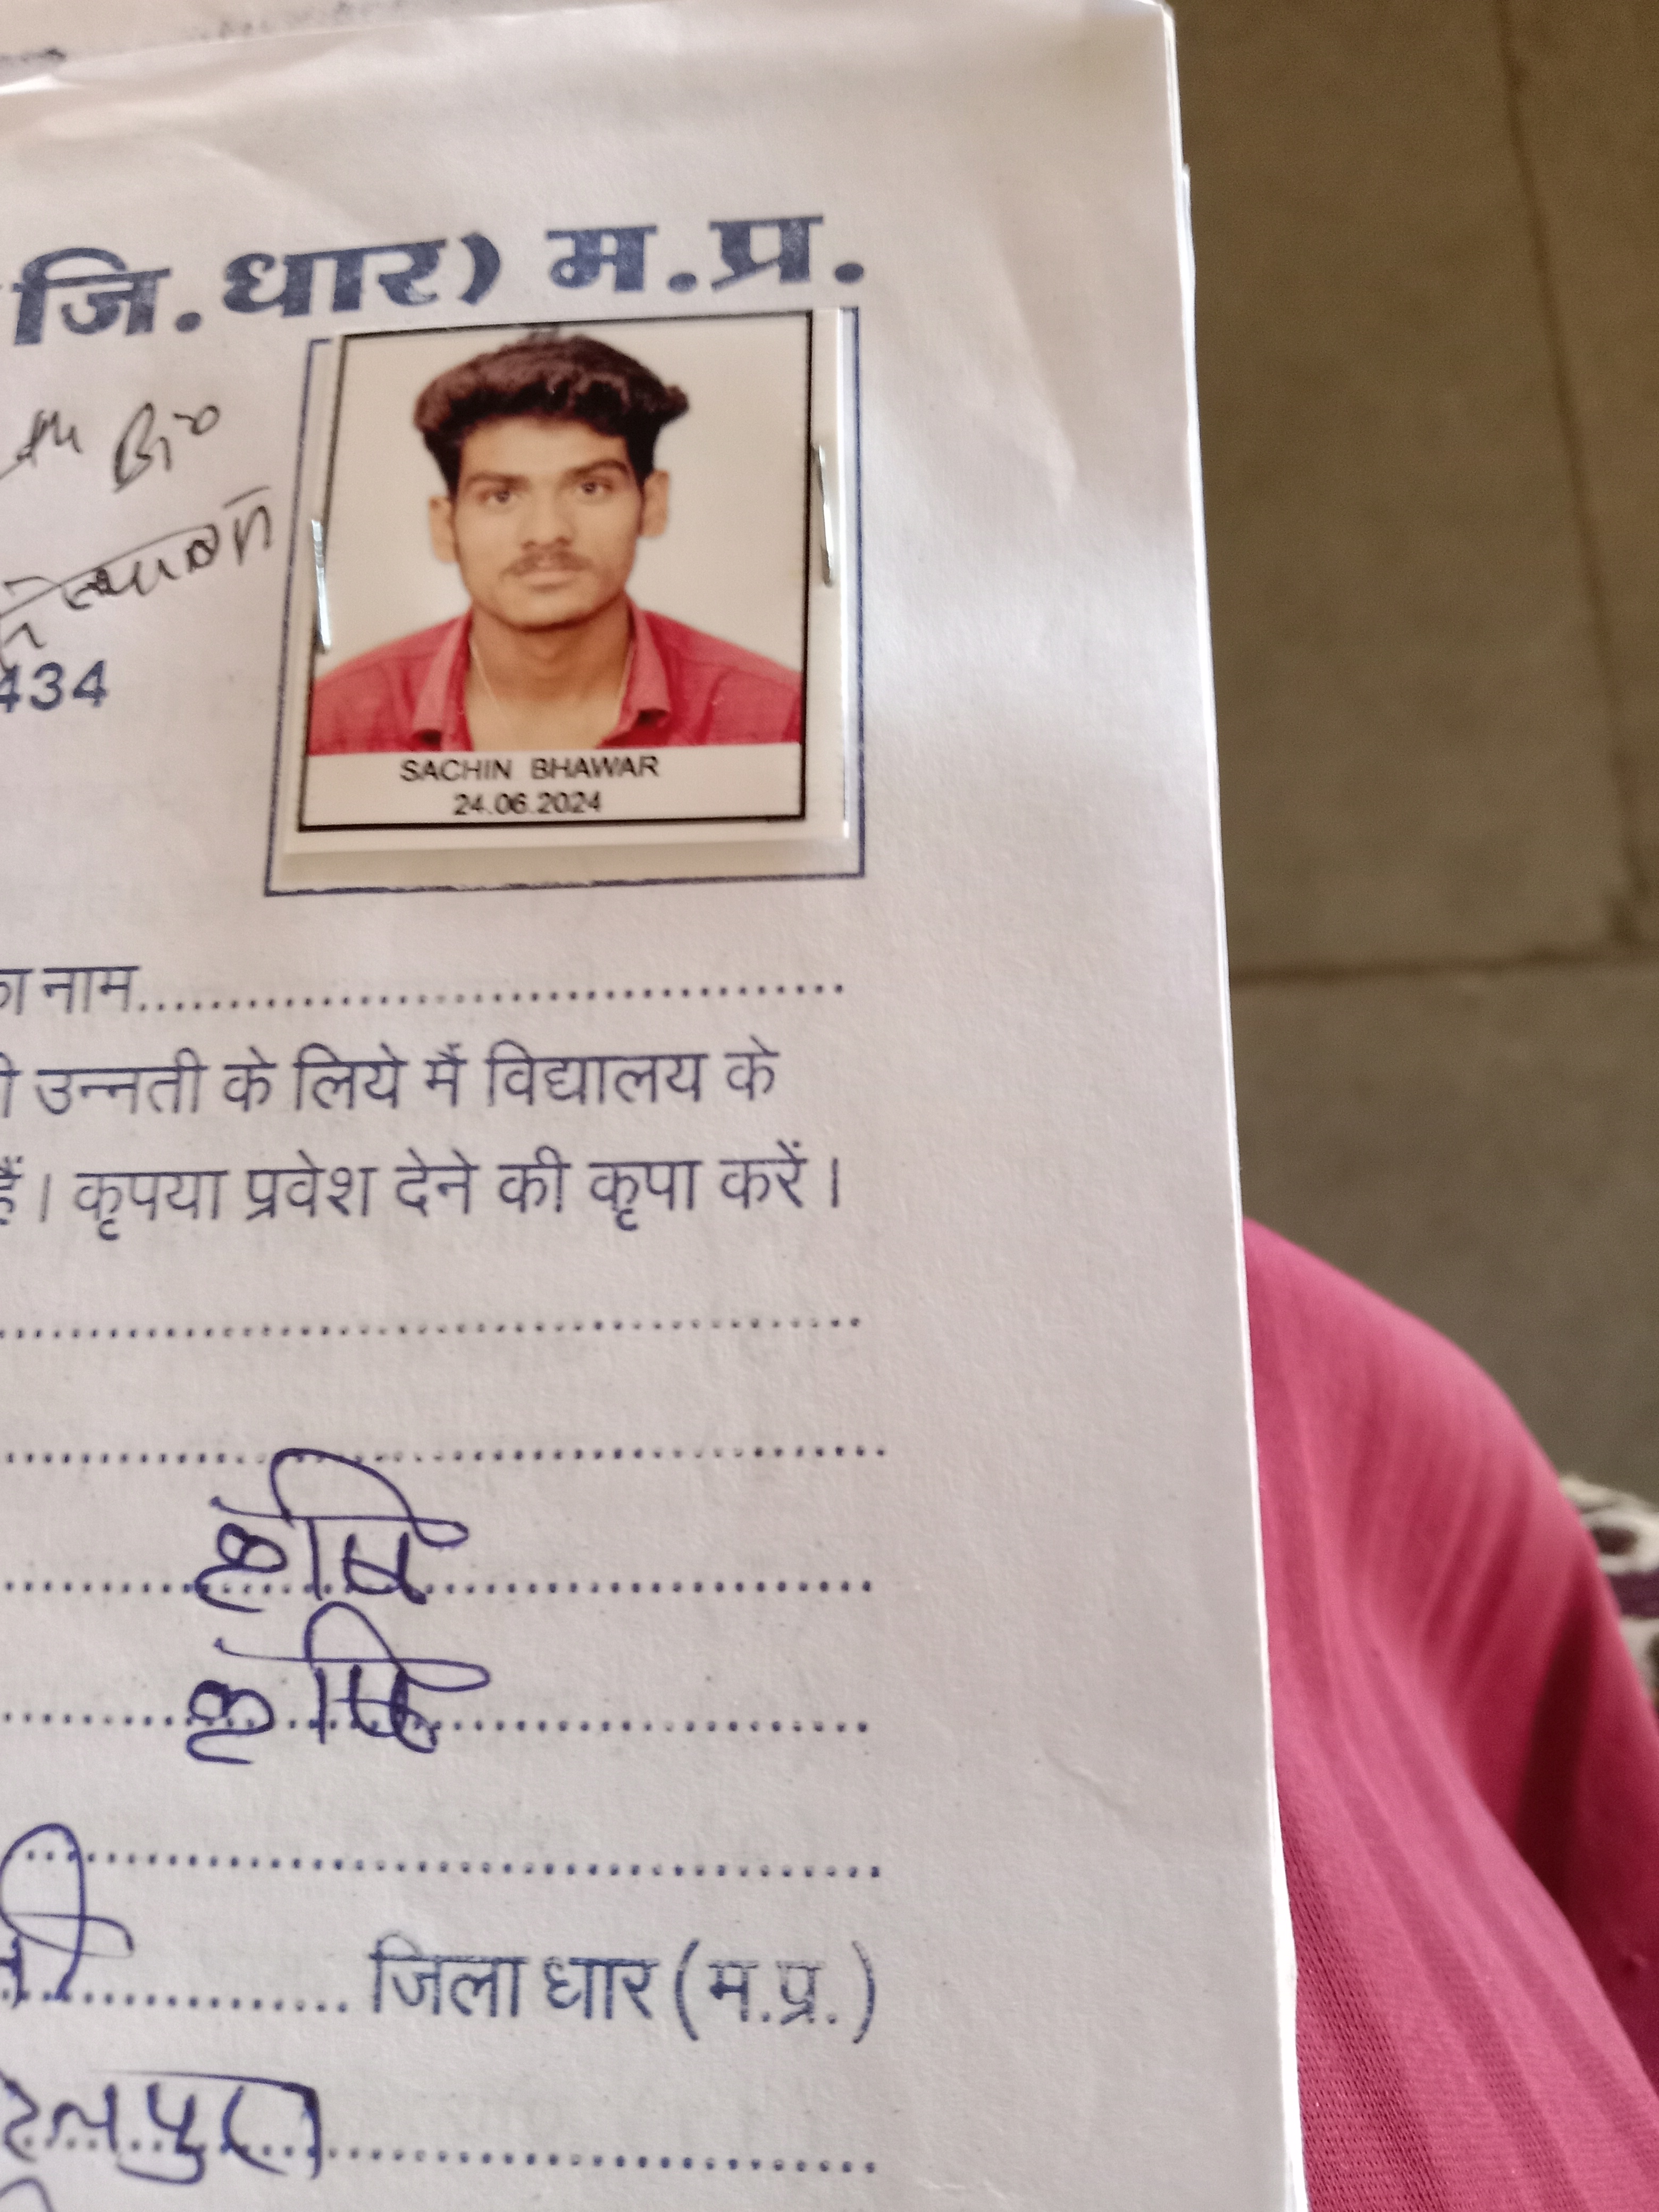 जि.धार) म.प्र.
Bio
434
SACHIN BHAWAR
24.06.2024
का नाम........................................
उन्नती के लिये मैं विद्यालय के
हैं। कृपया प्रवेश देने की कृपा करें।
कृषि
कृषि
जिला धार (म.प्र.)